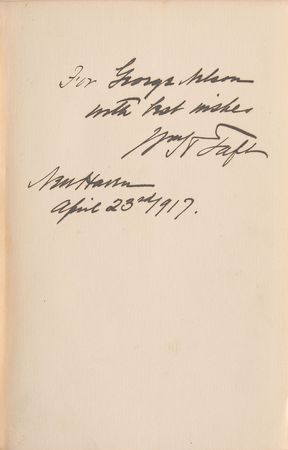 For George Nelson
with best wishes
Wm H Taft
New Haven
April 23rd 1917.